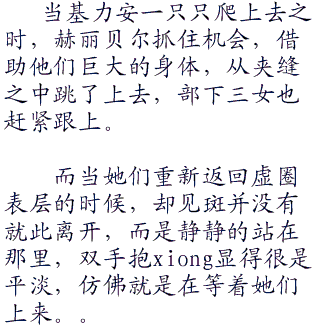 当基力安一只只爬上去之
时，赫丽贝尔抓住机会，借
助他们巨大的身体，从夹缝
之中跳了上去，部下三女也
赶紧跟上。
而当她们重新返回虚圈
表层的时候，却见斑并没有
就此离开，而是静静的站在
那里，双手抱xiong显得很是
平淡，仿佛就是在等着她们
上来。。